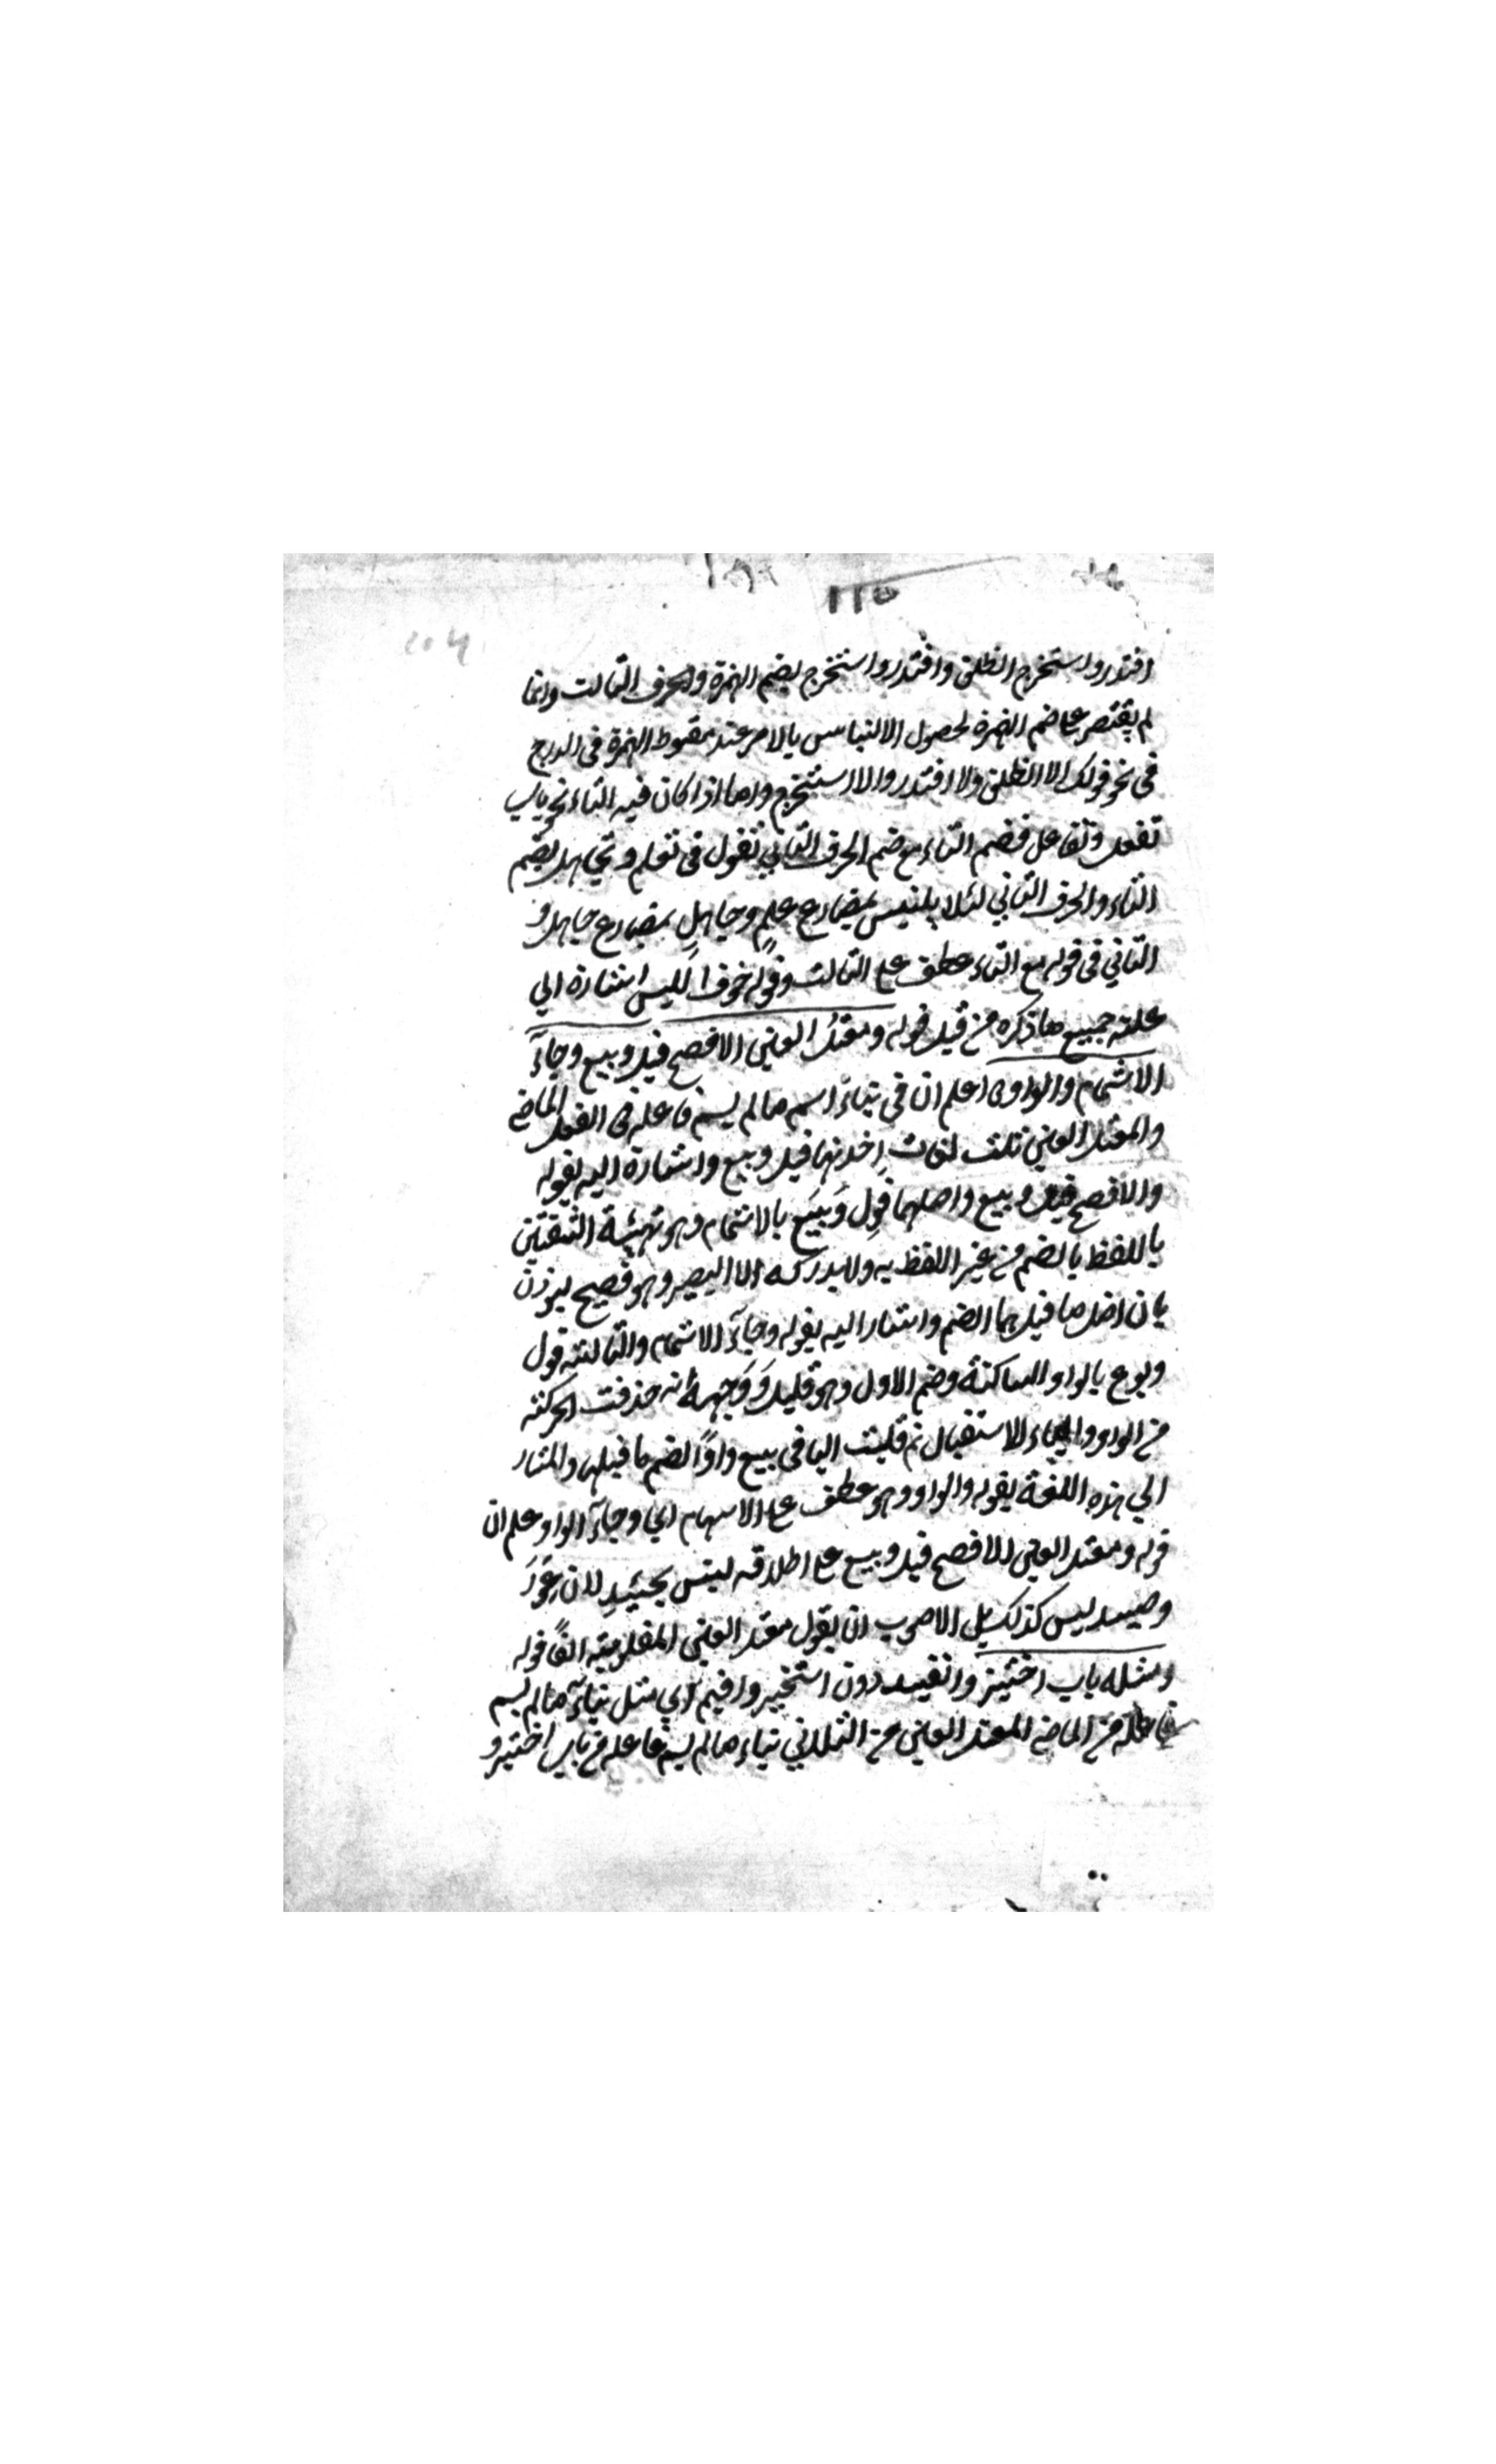 ١١٥
اقتدر واستخرج انطلق واقتدر واستخرج بضم الهمزة والحرف الثالث وانما
لم يقتصر على ضم الهمزة لحصول الالتباس بالامر عند سقوط الهمزة فى الدرج
فى نحو قولك الا انطلق ولا اقتدر والا استخرج واما اذا كان فيه التاء نحو باب
تفعل وتفاعل فضم التاء مع ضم الحرف الثاني تقول فى تعلم وتجاهل بضم
التاء والحرف الثاني لئلا يلتبس بمضارع علم وجاهل بمضارع جاهل و
الثاني فى قوله مع التاء عطف على الثالث وقوله خوف اللبس اشارة الي
علته جميع ما ذكره من قبل قوله ومعتل العين الافصح قيل وبيع وجآء
الاشمام والواو اعلم ان فى بناء اسم ما لم يسم فاعله فى الفعل الماضي
والمعتل العين ثلث لغات احديها قيل وبيع واشارة اليه بقوله
والافصح قيل وبيع واصلهما قول وبيع بالاشمام وهو تهيئة الشفتين
باللفظ بالضم من غير اللفظ به ولا يدركه الا البصير وهو فصيح ليوذن
بان اصل ما قبلهما الضم واشار اليه بقوله وجآء الاشمام والثالثة قول
وبوع بالواو الساكنة وضم الاول وهو قليل ووجهه انه حذفت الحركة
من الواو والياء للاستقبال ثم قلبت اليا فى بيع واوًا لضم ما قبلها والمشار
الي هذه اللغة بقوله والواو وهو عطف على الاسهام اي وجآء الواو علم ان
قوله ومعتل العين الافصح قيل وبيع على اطلاقه ليس بجيد لان عور
وصيد ليس كذلك بل الاصوب ان يقول معتل العين المقلوبة الفًا قوله
ومثله باب اختير وانقيد دون استخير واقيم اي مثل بناء ما لم يسم
فاعله من الماضي المعتل العين من الثلاثي بناء ما لم يسم فاعله من باب اختير و